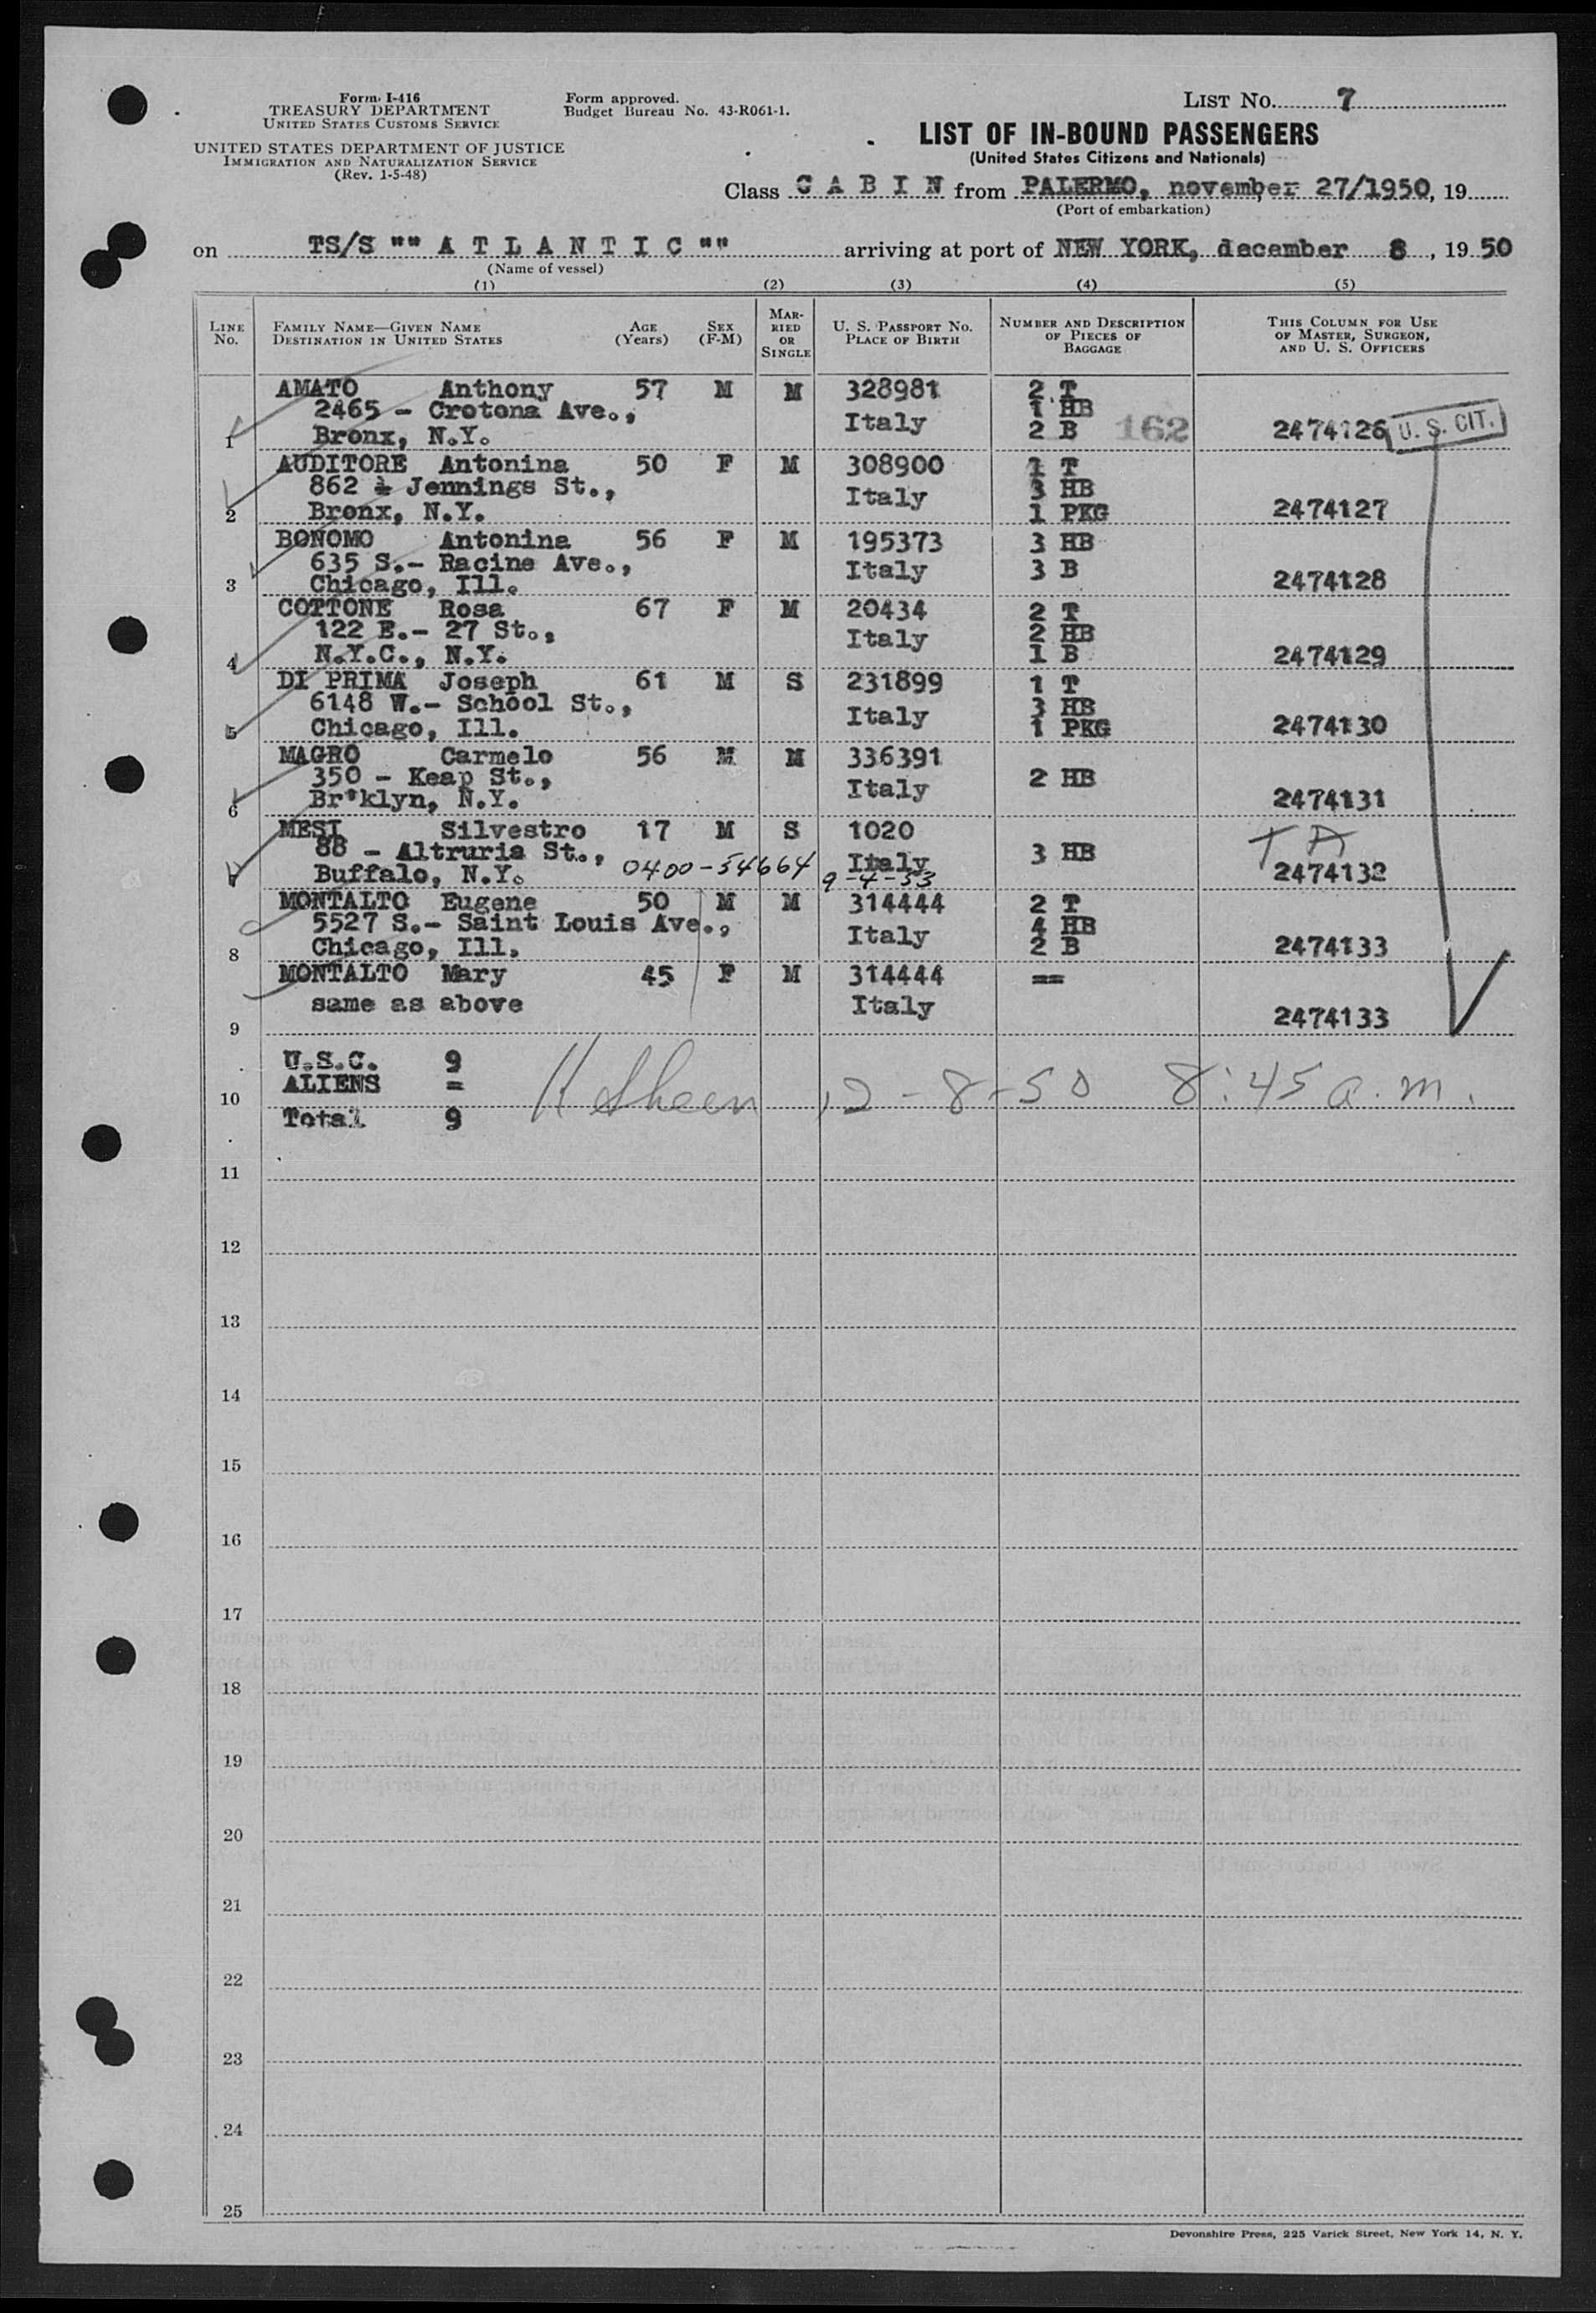 Form I-416
TREASURY DEPARTMENT
UNITED STATES CUSTOMS SERVICE
UNITED STATES DEPARTMENT OF JUSTICE
IMMIGRATION AND NATURALIZATION SERVICE
(Rev. 1-5-48)
Form approved.
Budget Bureau No. 43-R061-1.
LIST No. 7
LIST OF IN-BOUND PASSENGERS
(United States Citizens and Nationals)
Class C A B I N from PALERMO, november 27/1950, 19
(Port of embarkation)
on TS/S "" A T L A N T I C "" arriving at port of NEW YORK, december 8, 19 50
(Name of vessel)
(1) (2) (3) (4) (5)
LINE No. FAMILY NAME—GIVEN NAME DESTINATION IN UNITED STATES AGE (Years) SEX (F-M) MARRIED OR SINGLE U. S. PASSPORT No. PLACE OF BIRTH NUMBER AND DESCRIPTION OF PIECES OF BAGGAGE THIS COLUMN FOR USE OF MASTER, SURGEON, AND U. S. OFFICERS
AMATO Anthony 57 M M 328981 2 T
2465 - Crotona Ave., Italy 1 HB
1 Bronx, N.Y. 2 B 162 2474126 U. S. CIT.
AUDITORE Antonina 50 F M 308900 1 T
862 Jennings St., Italy 3 HB
2 Bronx, N.Y. 1 PKG 2474127
BONOMO Antonina 56 F M 195373 3 HB
635 S.- Racine Ave., Italy 3 B
3 Chicago, Ill. 2474128
COTTONE Rosa 67 F M 20434 2 T
122 E.- 27 St., Italy 2 HB
4 N.Y.C., N.Y. 1 B 2474129
DI PRIMA Joseph 61 M S 231899 1 T
6148 W.- School St., Italy 3 HB
5 Chicago, Ill. 1 PKG 2474130
MAGRO Carmelo 56 M M 336391
350 - Keap St., Italy 2 HB
6 Br'klyn, N.Y. 2474131
MESI Silvestro 17 M S 1020 T A
88 - Altruria St., Italy 3 HB
7 Buffalo, N.Y. 0400-54664 9-4-53 2474132
MONTALTO Eugene 50 M M 314444 2 T
5527 S.- Saint Louis Ave., Italy 4 HB
8 Chicago, Ill. 2 B 2474133
MONTALTO Mary 45 F M 314444 ==
same as above Italy
9 2474133
U.S.C. 9
10 ALIENS = 12-8-50 8:45 a.m.
Total 9
11
12
13
14
15
16
17
18
19
20
21
22
23
24
25
Devonshire Press, 225 Varick Street, New York 14, N. Y.